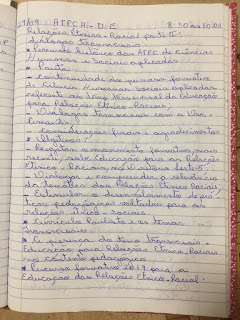 27/09 ATPC A - D.E 8:30 às 10:00
Relações Étnico-Racial parte II:
Diálogos Transversais.
• Percurso histórico das ATPC de Ciências
Humanas e Sociais aplicadas
• Pauta
- continuidade do percurso formativo
de Ciências Humanas Sociais aplicadas
referente ao Tema Transversal da Educação
para Relações Étnico-Raciais;
- Diálogos transversais com a
- considerações finais e agradecimentos
• Objetivos:
- Registrar o movimento formativo mais
recente sobre Educação para as Relações
Étnico-Raciais,
- Dialogar e compreender a relevância
da temática das Relações Étnico-Raciais
- Estimular o desenvolvimento de prá
ticas pedagógicas voltadas para as
relações étnico-raciais
• Currículo Paulista e os temas
transversais
• A presença do tema transversal -
Educação para Relações Étnico-Raciais
no contexto pedagógico
• Percurso formativo 2019 para a
Educação das Relações Étnico-Racial.